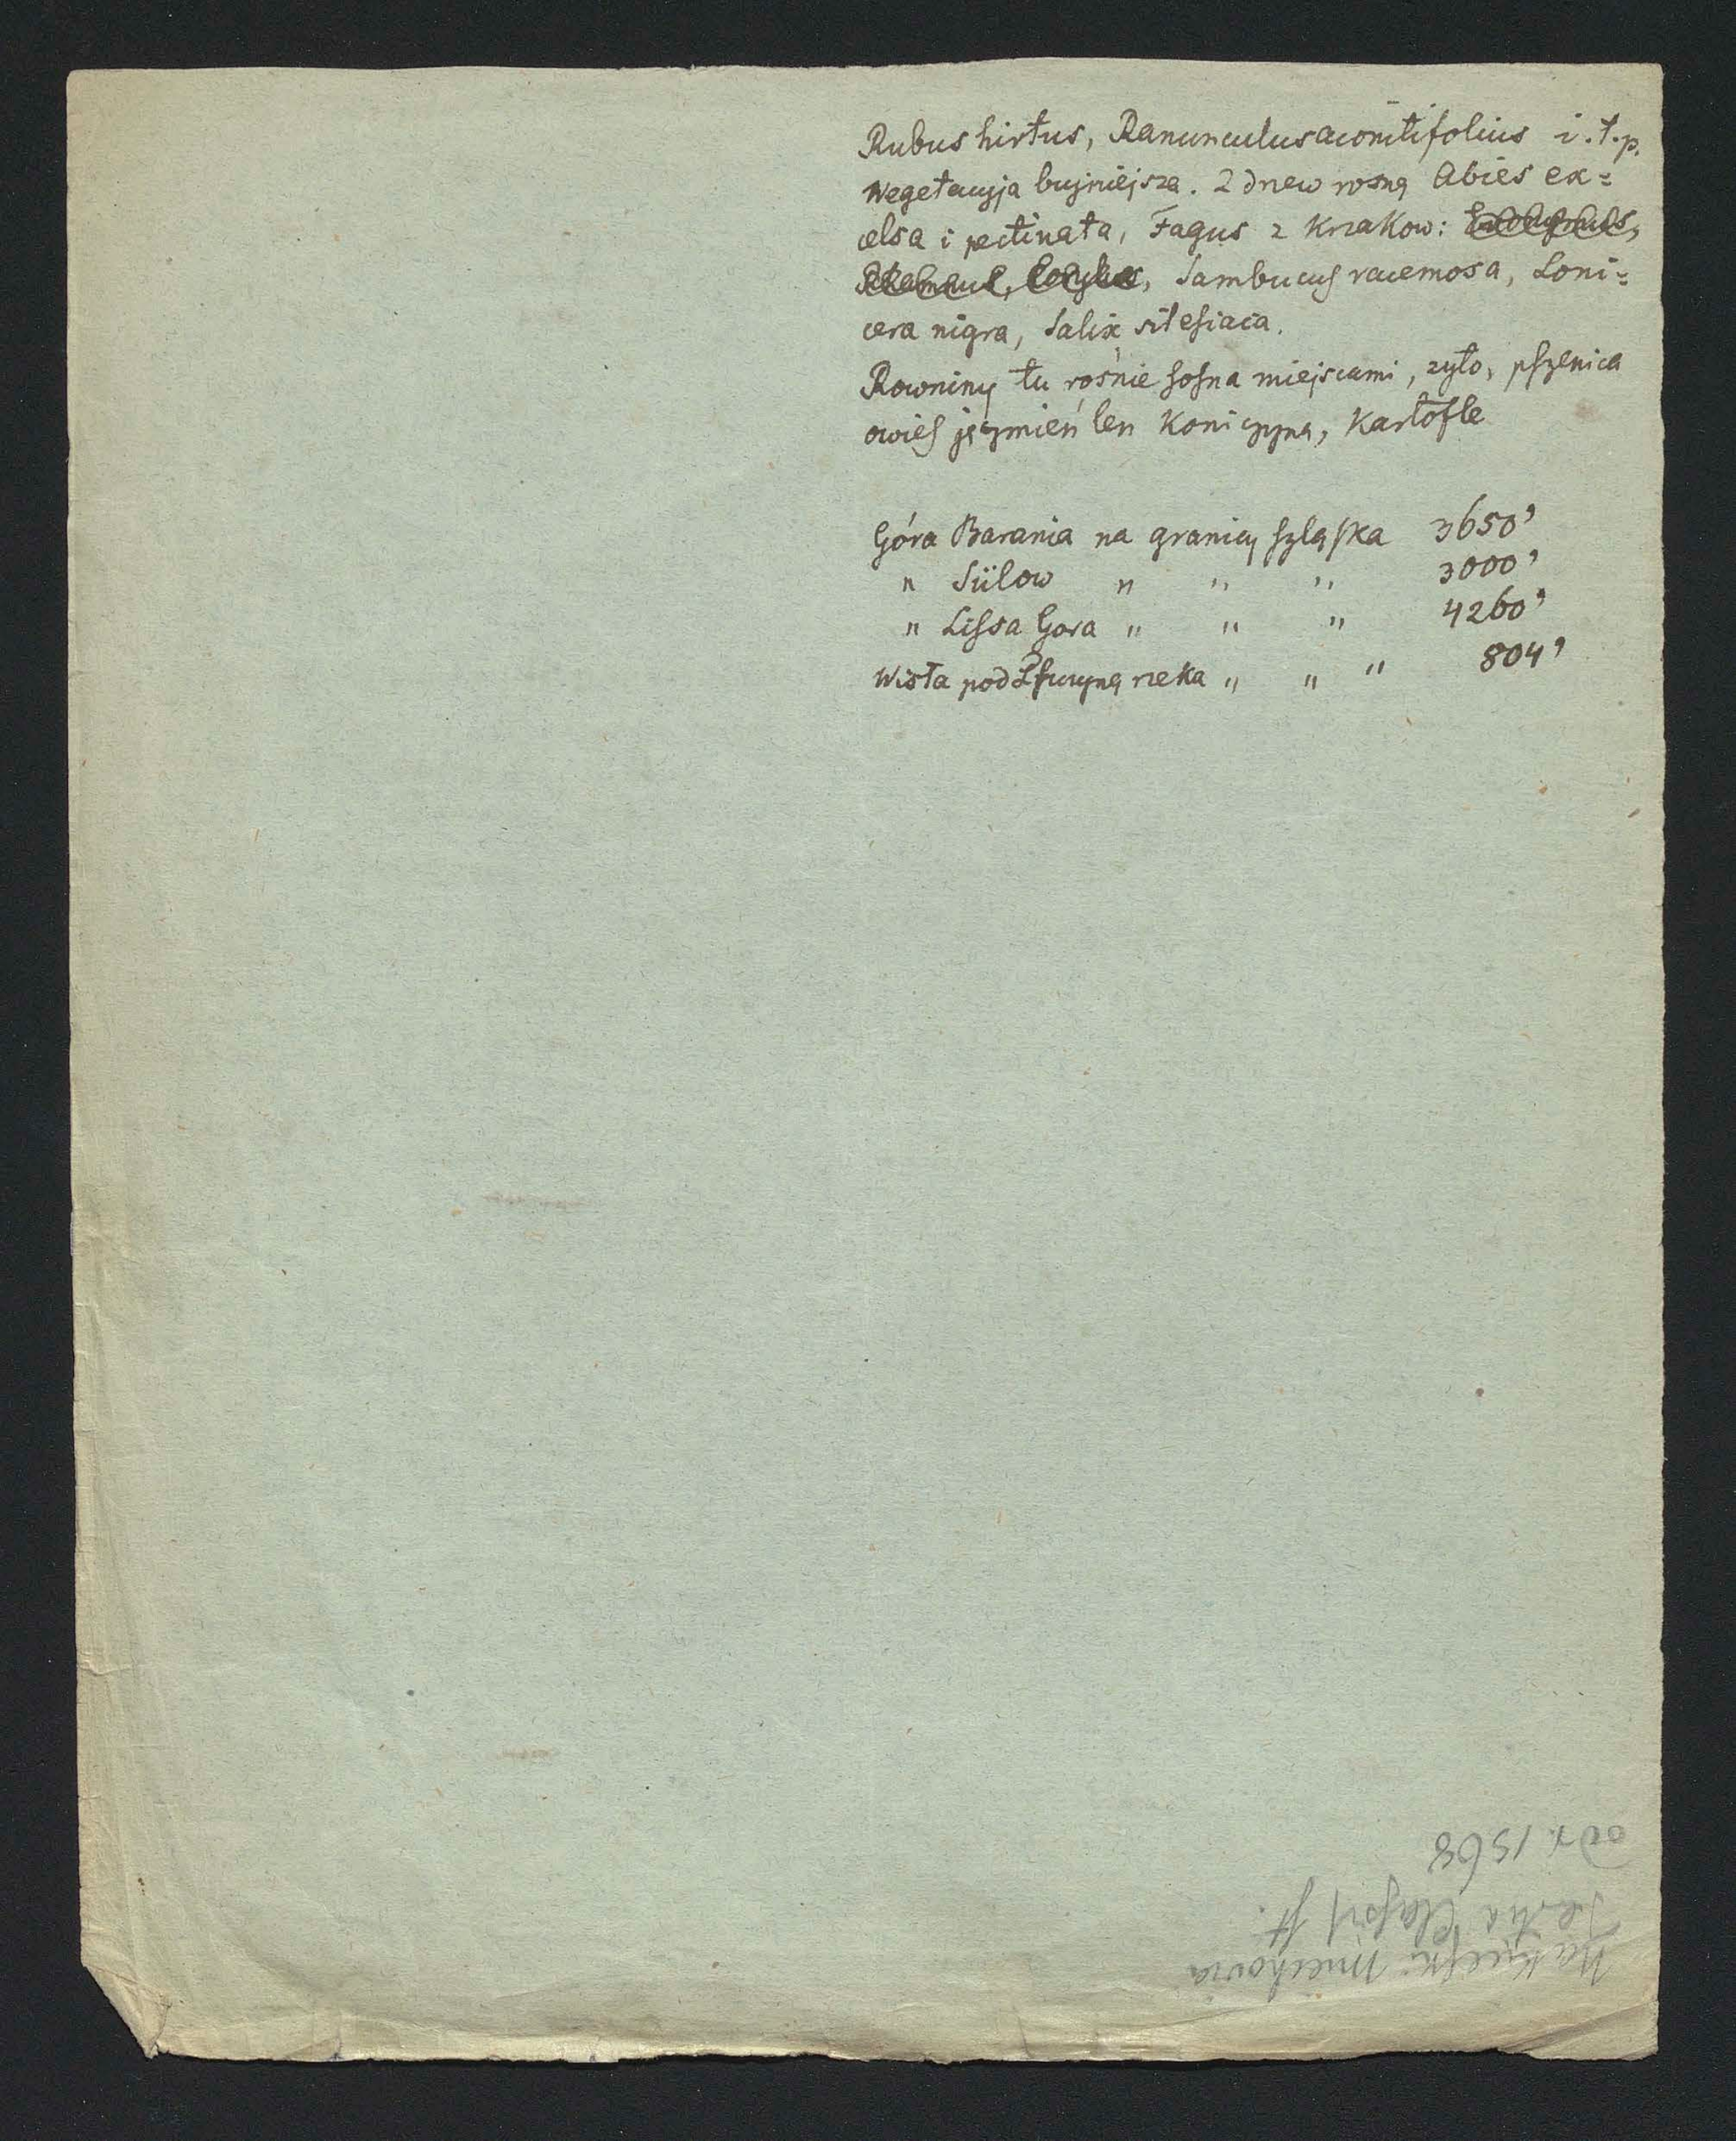 Rubus hirtus, Ranunculus aconitifolius i.t.p.
Wegetacyja bujniejsza. Z drzew rosną Abies ex=
celsa i pectinata, Fagus z krzakow:
Sambucus racemosa, Loni=
cera nigra, Salix silesiaca.
Rowniny tu rośnie sosna miejscami, zyto, pszenica
owies jęczmień len koniczyna, kartofle
Góra Barania na granicy szląska 3650'
" " " " 3000'
" Lissa Gora " " " 4260'
Wisła pod rzeka " " " 804'
1568